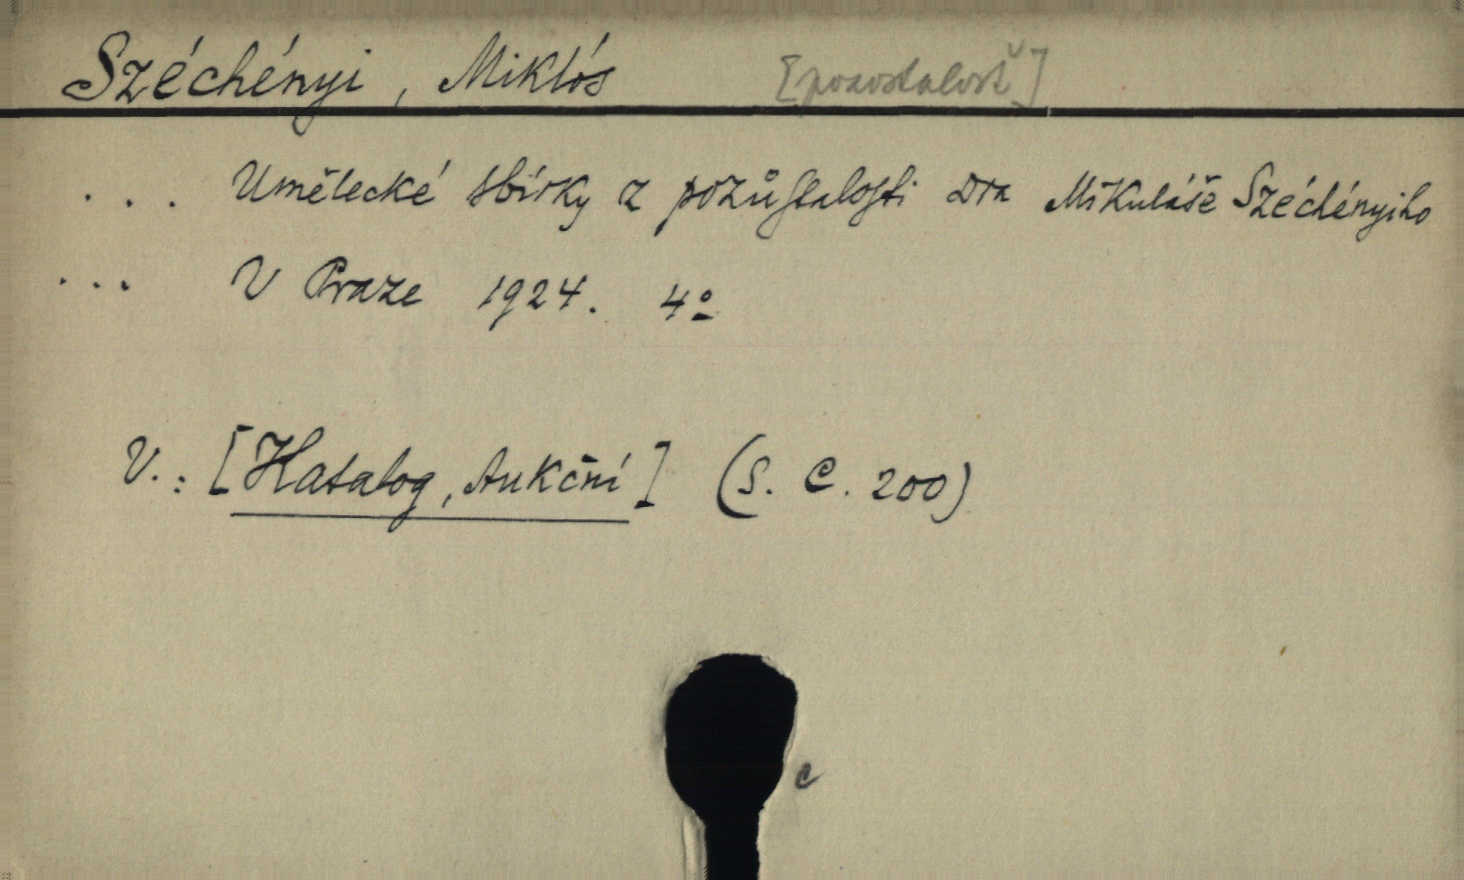 Széchényi, Miklós [pozostalosť]
. . . Umělecké sbírky z pozůstalosti Dra Mikuláše Széchényiho
. . . V Praze 1924. 4º
V.: [Katalog, Aukční] (S. C. 200)
c